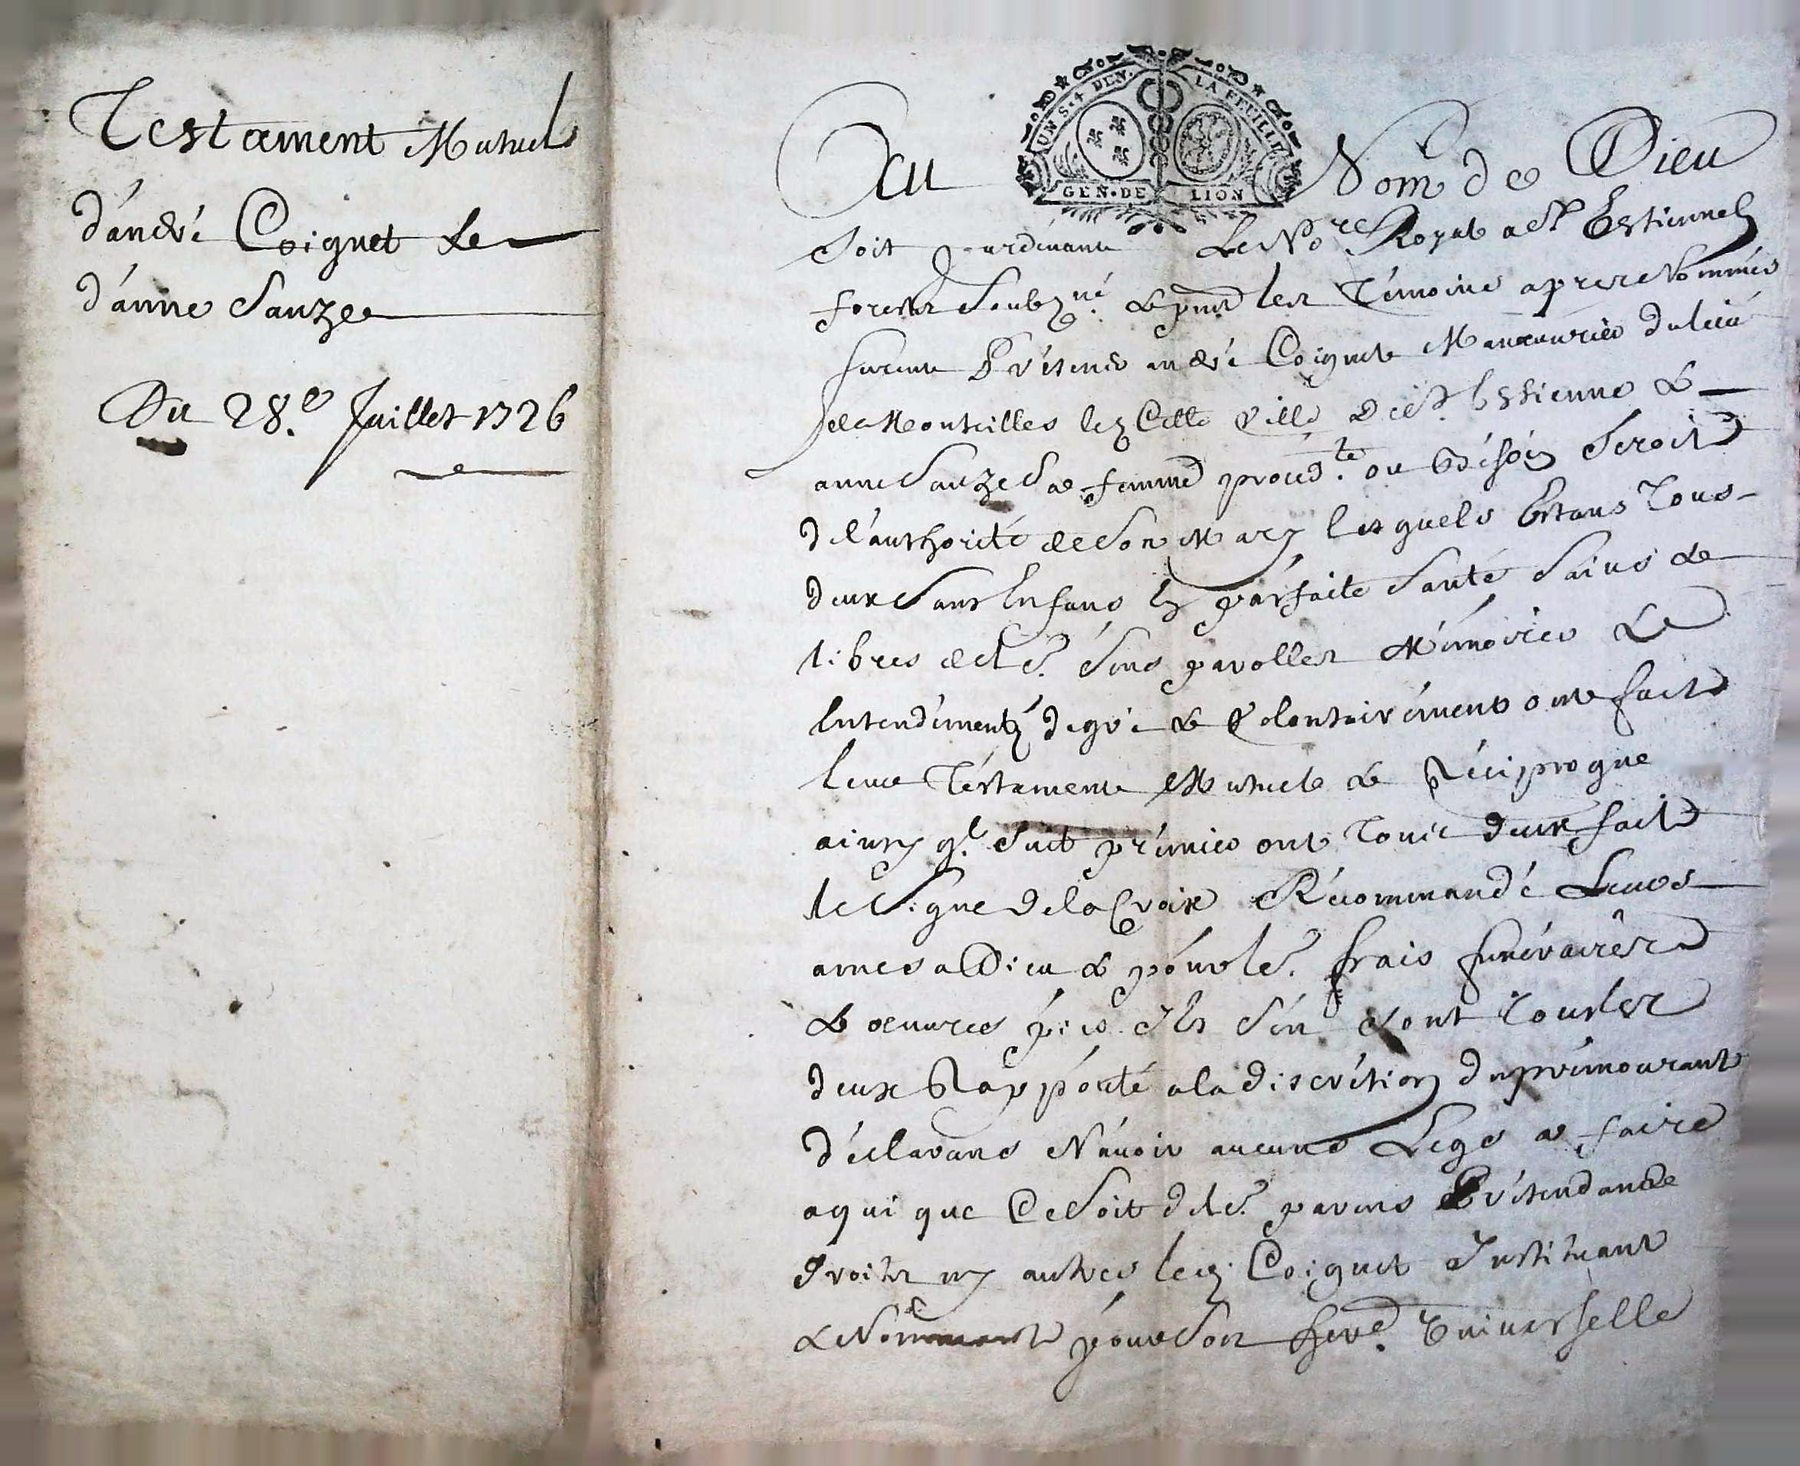 Testament Mutuel
d'andré Coignet &
d'anne Sauzée
Du 28.e Juillet 1726
UN S. 4 DEN. LA FEUILLE
GEN. DE LION
Au Nom de Dieu
Soit pardevant Le No.re Royal a St Estienne
forests soubz.né & pnts les Témoins apres Nommés
furent Présens andré Coignet Manouvrier du lieu
de Monteilles lez Cette Ville de St Estienne &
anne Sauze Sa femme proced.te ou bésoin Seroit
de l'authorité de Son Mary lesquels Estans Tous
deux Sans Enfans En parfaite Santé Sains &
libres de le.s Sens parolles Mémoires &
Entendements de gré & Volontairément ont fait
leur Téstament Mutuel & Réciproque
ainsy q.l Suit prémier ont Tous deux fait
le Signe de la Croix Récommandé Leurs
ames a Dieu & pour le.s frais funéraires
& oeuvres pies Ils S'en Sont Tous les
deux Rapporté a la discrétion du prémourant
déclarans N'avoir aucuns Legs a faire
a qui que Ce Soit de le.s parens Prétendans
droits ny autres led. Coignet Instituant
& Nommant pour Son her.e Universelle